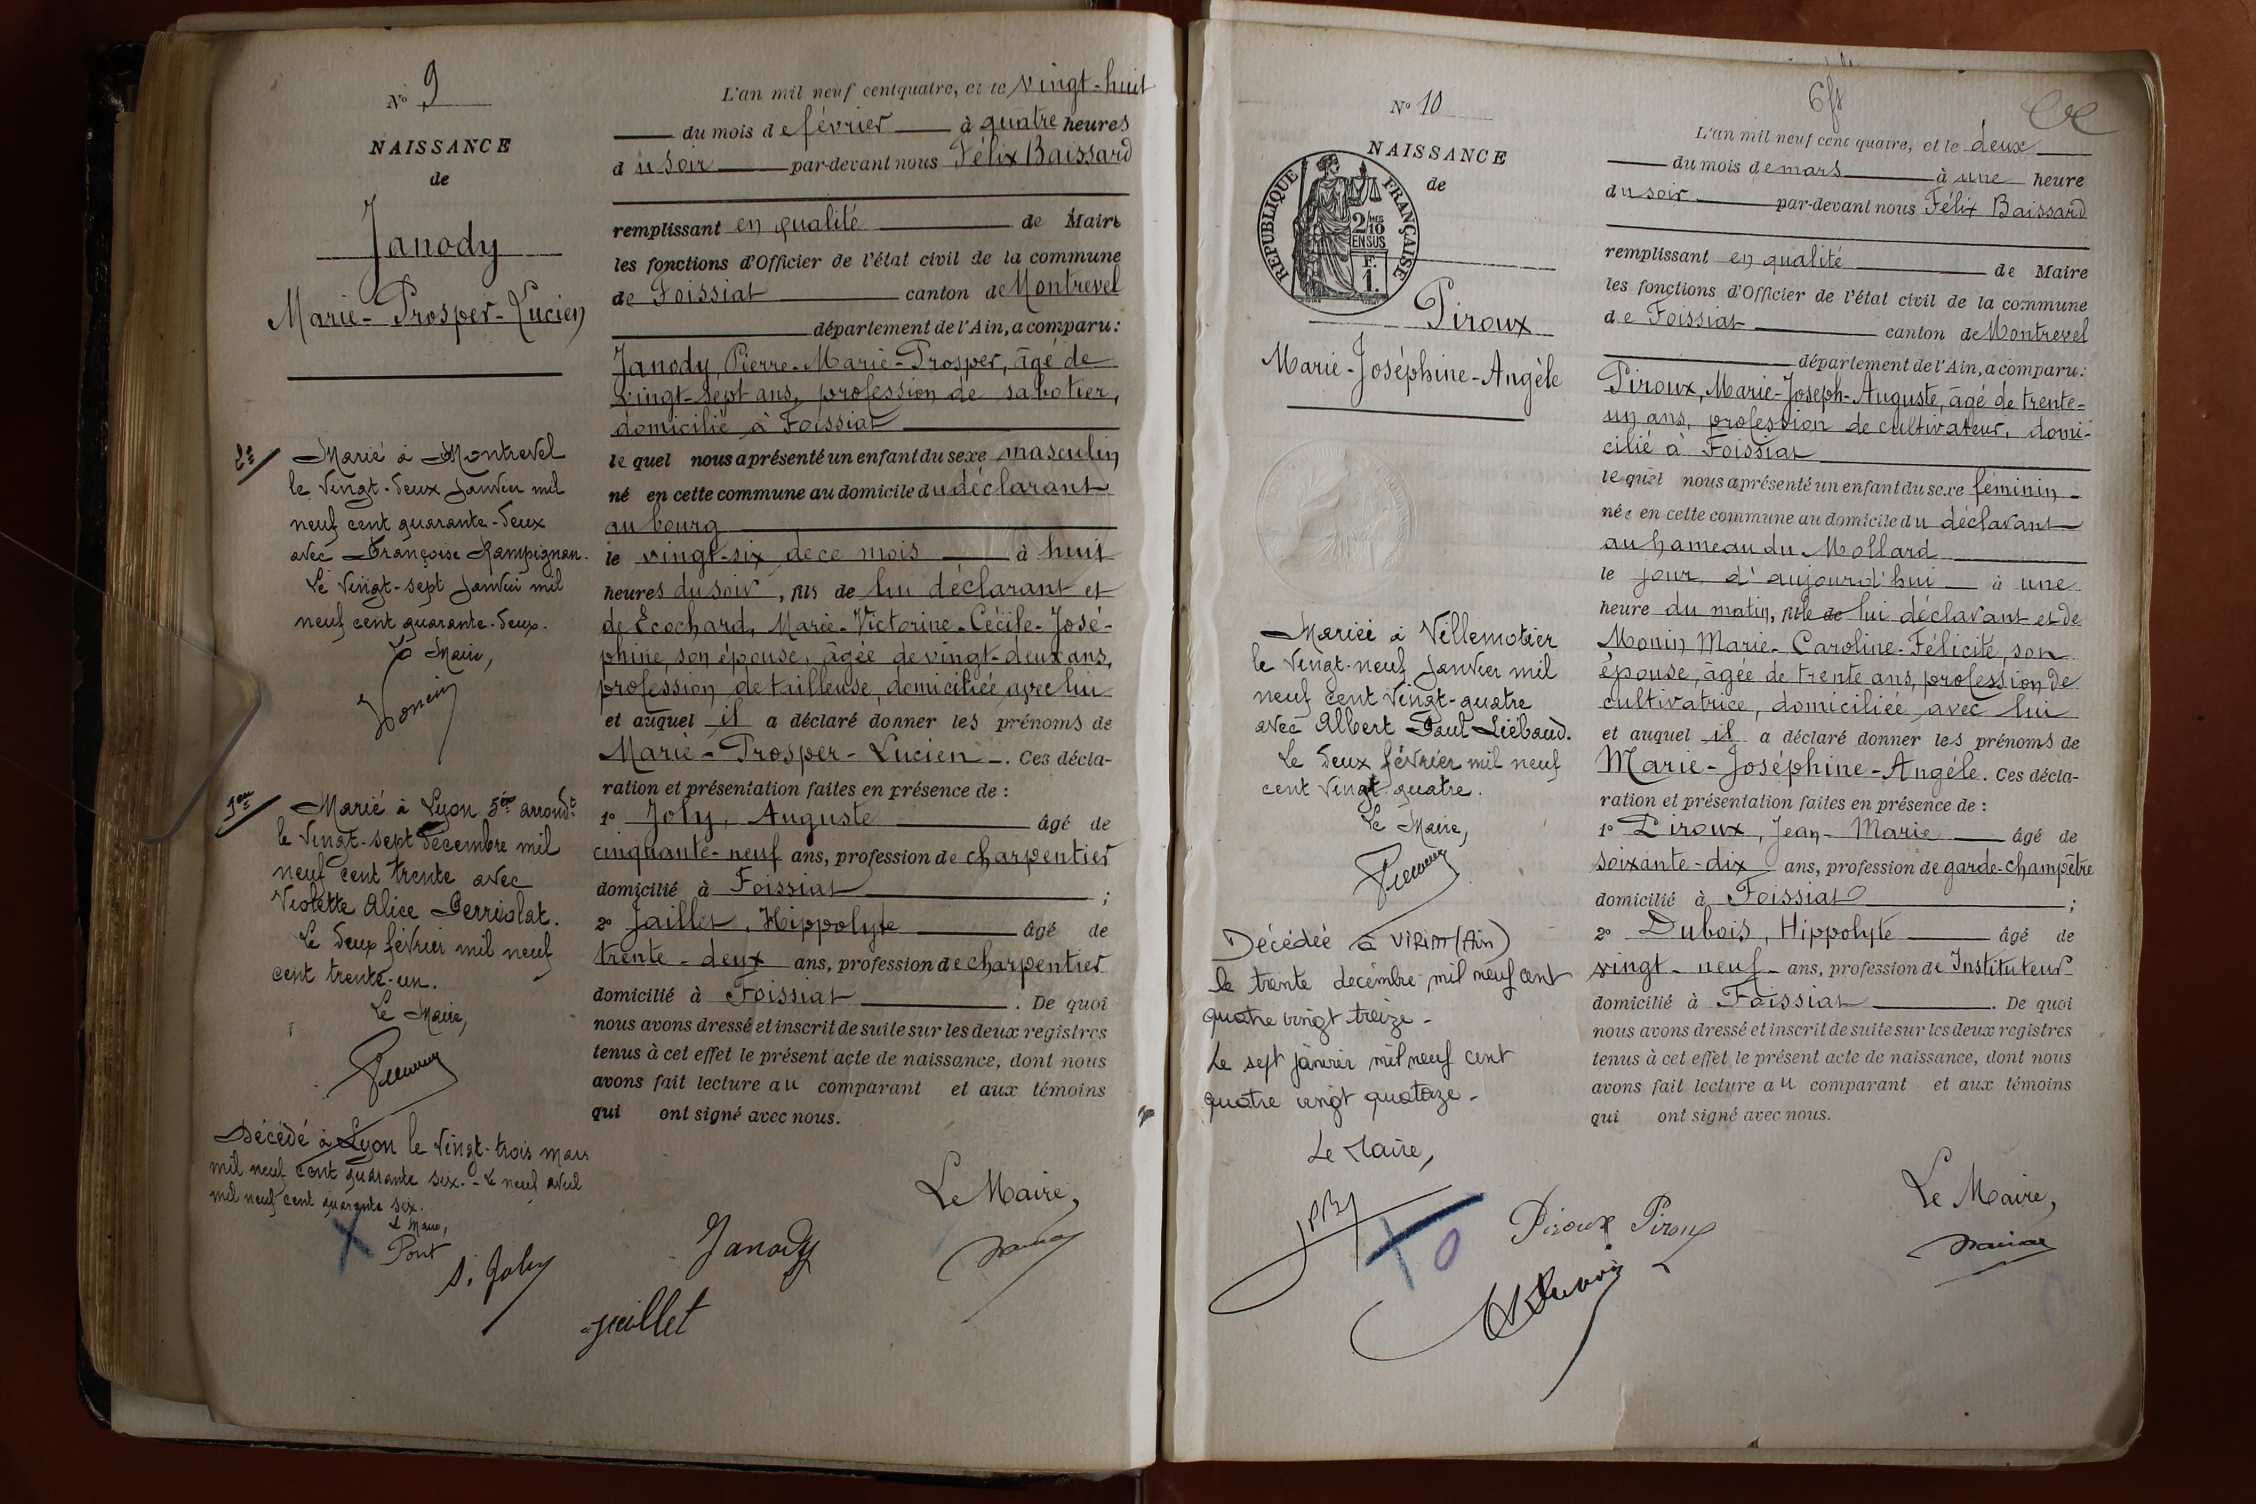 N° 9
NAISSANCE
de
Janody
Marie-Prosper-Lucien
2e/ Marié à Montrevel
le vingt-deux janvier mil
neuf cent quarante-deux
avec Françoise Rampignon.
Le vingt-sept janvier mil
neuf cent quarante-deux.
Le Maire,
1er/ Marié à Lyon 5ème arrondt
le vingt-sept décembre mil
neuf cent trente avec
Violette Alice Perriolat.
Le deux février mil neuf
cent trente-un.
Le Maire,
Décédé à Lyon le vingt-trois mars
mil neuf cent quarante six. - Le neuf avril
mil neuf cent quarante six.
Le Maire,
Pont
L'an mil neuf cent quatre, et le vingt-huit
du mois de février à quatre heures
du soir par-devant nous Félix Baissard
remplissant en qualité de Maire
les fonctions d'Officier de l'état civil de la commune
de Foissiat canton de Montrevel
département de l'Ain, a comparu:
Janody, Pierre-Marie-Prosper, âgé de
vingt-sept ans, profession de sabotier,
domicilié à Foissiat
lequel nous a présenté un enfant du sexe masculin
né en cette commune au domicile du déclarant
au bourg
le vingt-six de ce mois à huit
heures du soir, fils de lui déclarant et
de Ecochard, Marie-Victorine-Cécile-José-
phine, son épouse, âgée de vingt-deux ans,
profession de tailleuse, domiciliée avec lui
et auquel il a déclaré donner les prénoms de
Marie-Prosper-Lucien. Ces décla-
ration et présentation faites en présence de :
1° Joly, Auguste âgé de
cinquante-neuf ans, profession de charpentier
domicilié à Foissiat ;
2° Jaillet, Hippolyte âgé de
trente-deux ans, profession de charpentier
domicilié à Foissiat. De quoi
nous avons dressé et inscrit de suite sur les deux registres
tenus à cet effet le présent acte de naissance, dont nous
avons fait lecture au comparant et aux témoins
qui ont signé avec nous.
Le Maire,
Janody
Joly
Jaillet
N° 10
NAISSANCE
de
RÉPUBLIQUE FRANÇAISE
2/10 MES
EN SUS
F.
1.
Piroux
Marie-Joséphine-Angèle
Mariée à Villemotier
le vingt-neuf janvier mil
neuf cent vingt-quatre
avec Albert Paul Liébaud.
Le deux février mil neuf
cent vingt quatre.
Le Maire,
Décédée à VIRIAT (Ain)
le trente décembre mil neuf cent
quatre vingt treize -
Le sept janvier mil neuf cent
quatre vingt quatorze -
Le Maire,
L'an mil neuf cent quatre, et le deux
du mois de mars à une heure
du soir par-devant nous Félix Baissard
remplissant en qualité de Maire
les fonctions d'Officier de l'état civil de la commune
de Foissiat canton de Montrevel
département de l'Ain, a comparu:
Piroux, Marie-Joseph-Auguste, âgé de trente-
un ans, profession de cultivateur, domi-
cilié à Foissiat
lequel nous a présenté un enfant du sexe féminin
née en cette commune au domicile du déclarant
au hameau du Mollard
le jour d'aujourd'hui à une
heure du matin, fille de lui déclarant et de
Monin Marie-Caroline-Félicité, son
épouse, âgée de trente ans, profession de
cultivatrice, domiciliée avec lui
et auquel il a déclaré donner les prénoms de
Marie-Joséphine-Angèle. Ces décla-
ration et présentation faites en présence de :
1° Piroux, Jean-Marie âgé de
soixante-dix ans, profession de garde-champêtre
domicilié à Foissiat ;
2° Dubois, Hippolyte âgé de
vingt-neuf ans, profession de Instituteur
domicilié à Foissiat. De quoi
nous avons dressé et inscrit de suite sur les deux registres
tenus à cet effet le présent acte de naissance, dont nous
avons fait lecture au comparant et aux témoins
qui ont signé avec nous.
Le Maire,
Piroux Piroux